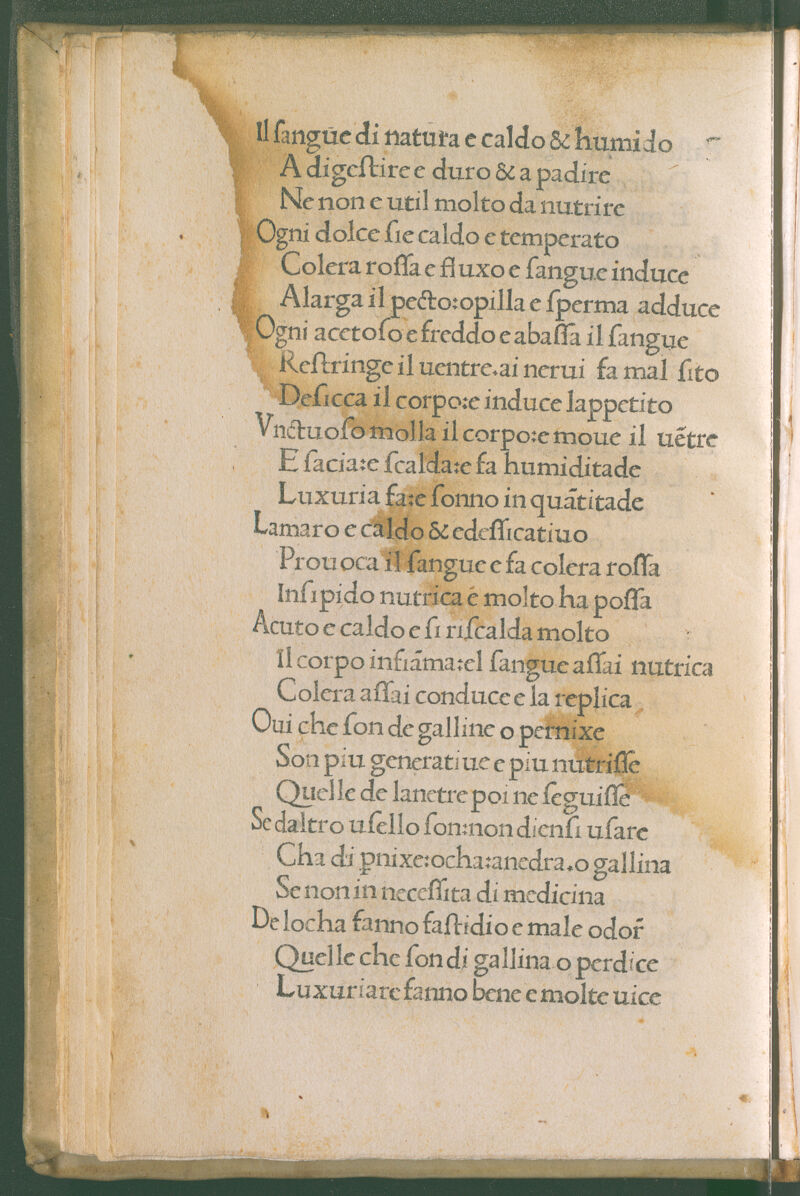 Il ſangue di natura e caldo & humido
A digeſtire e duro & a padire
Ne non e util molto da nutrire
Ogni dolce ſie caldo e temperato
Colera roſſa e fluxo e ſangue induce
Alarga il pecto:opilla e ſperma adduce
Ogni acetoſo e freddo e abaſſa il ſangue
Reſtringe il uentre.ai nerui fa mal ſito
Deſicca il corpo:e induce lappetito
Vnctuoſo molla il corpo:e moue il uētre
E ſacia:e ſcalda:e fa humiditade
Luxuria fa:e ſonno in quātitade
Lamaro e caldo & edeſſicatiuo
Prouoca il ſangue e fa colera roſſa
Inſipido nutrica e molto ha poſſa
Acuto e caldo e ſi riſcalda molto
Il corpo infiāma:el ſangue aſſai nutrica
Colera aſſai conduce e la replica
Oui che ſon de galline o pernixe
Son piu generatiue e piu nutriſſe
Quelle de lanetre poi ne ſeguiſſe
Se daltro uſello ſon:non dienſi uſare
Cha di pnixe:ocha:anedra.o gallina
Se non in neceſſita di medicina
De locha fanno faſtidio e male odor̄
Quelle che ſon di gallina o perdice
Luxuriare fanno bene e molte uice